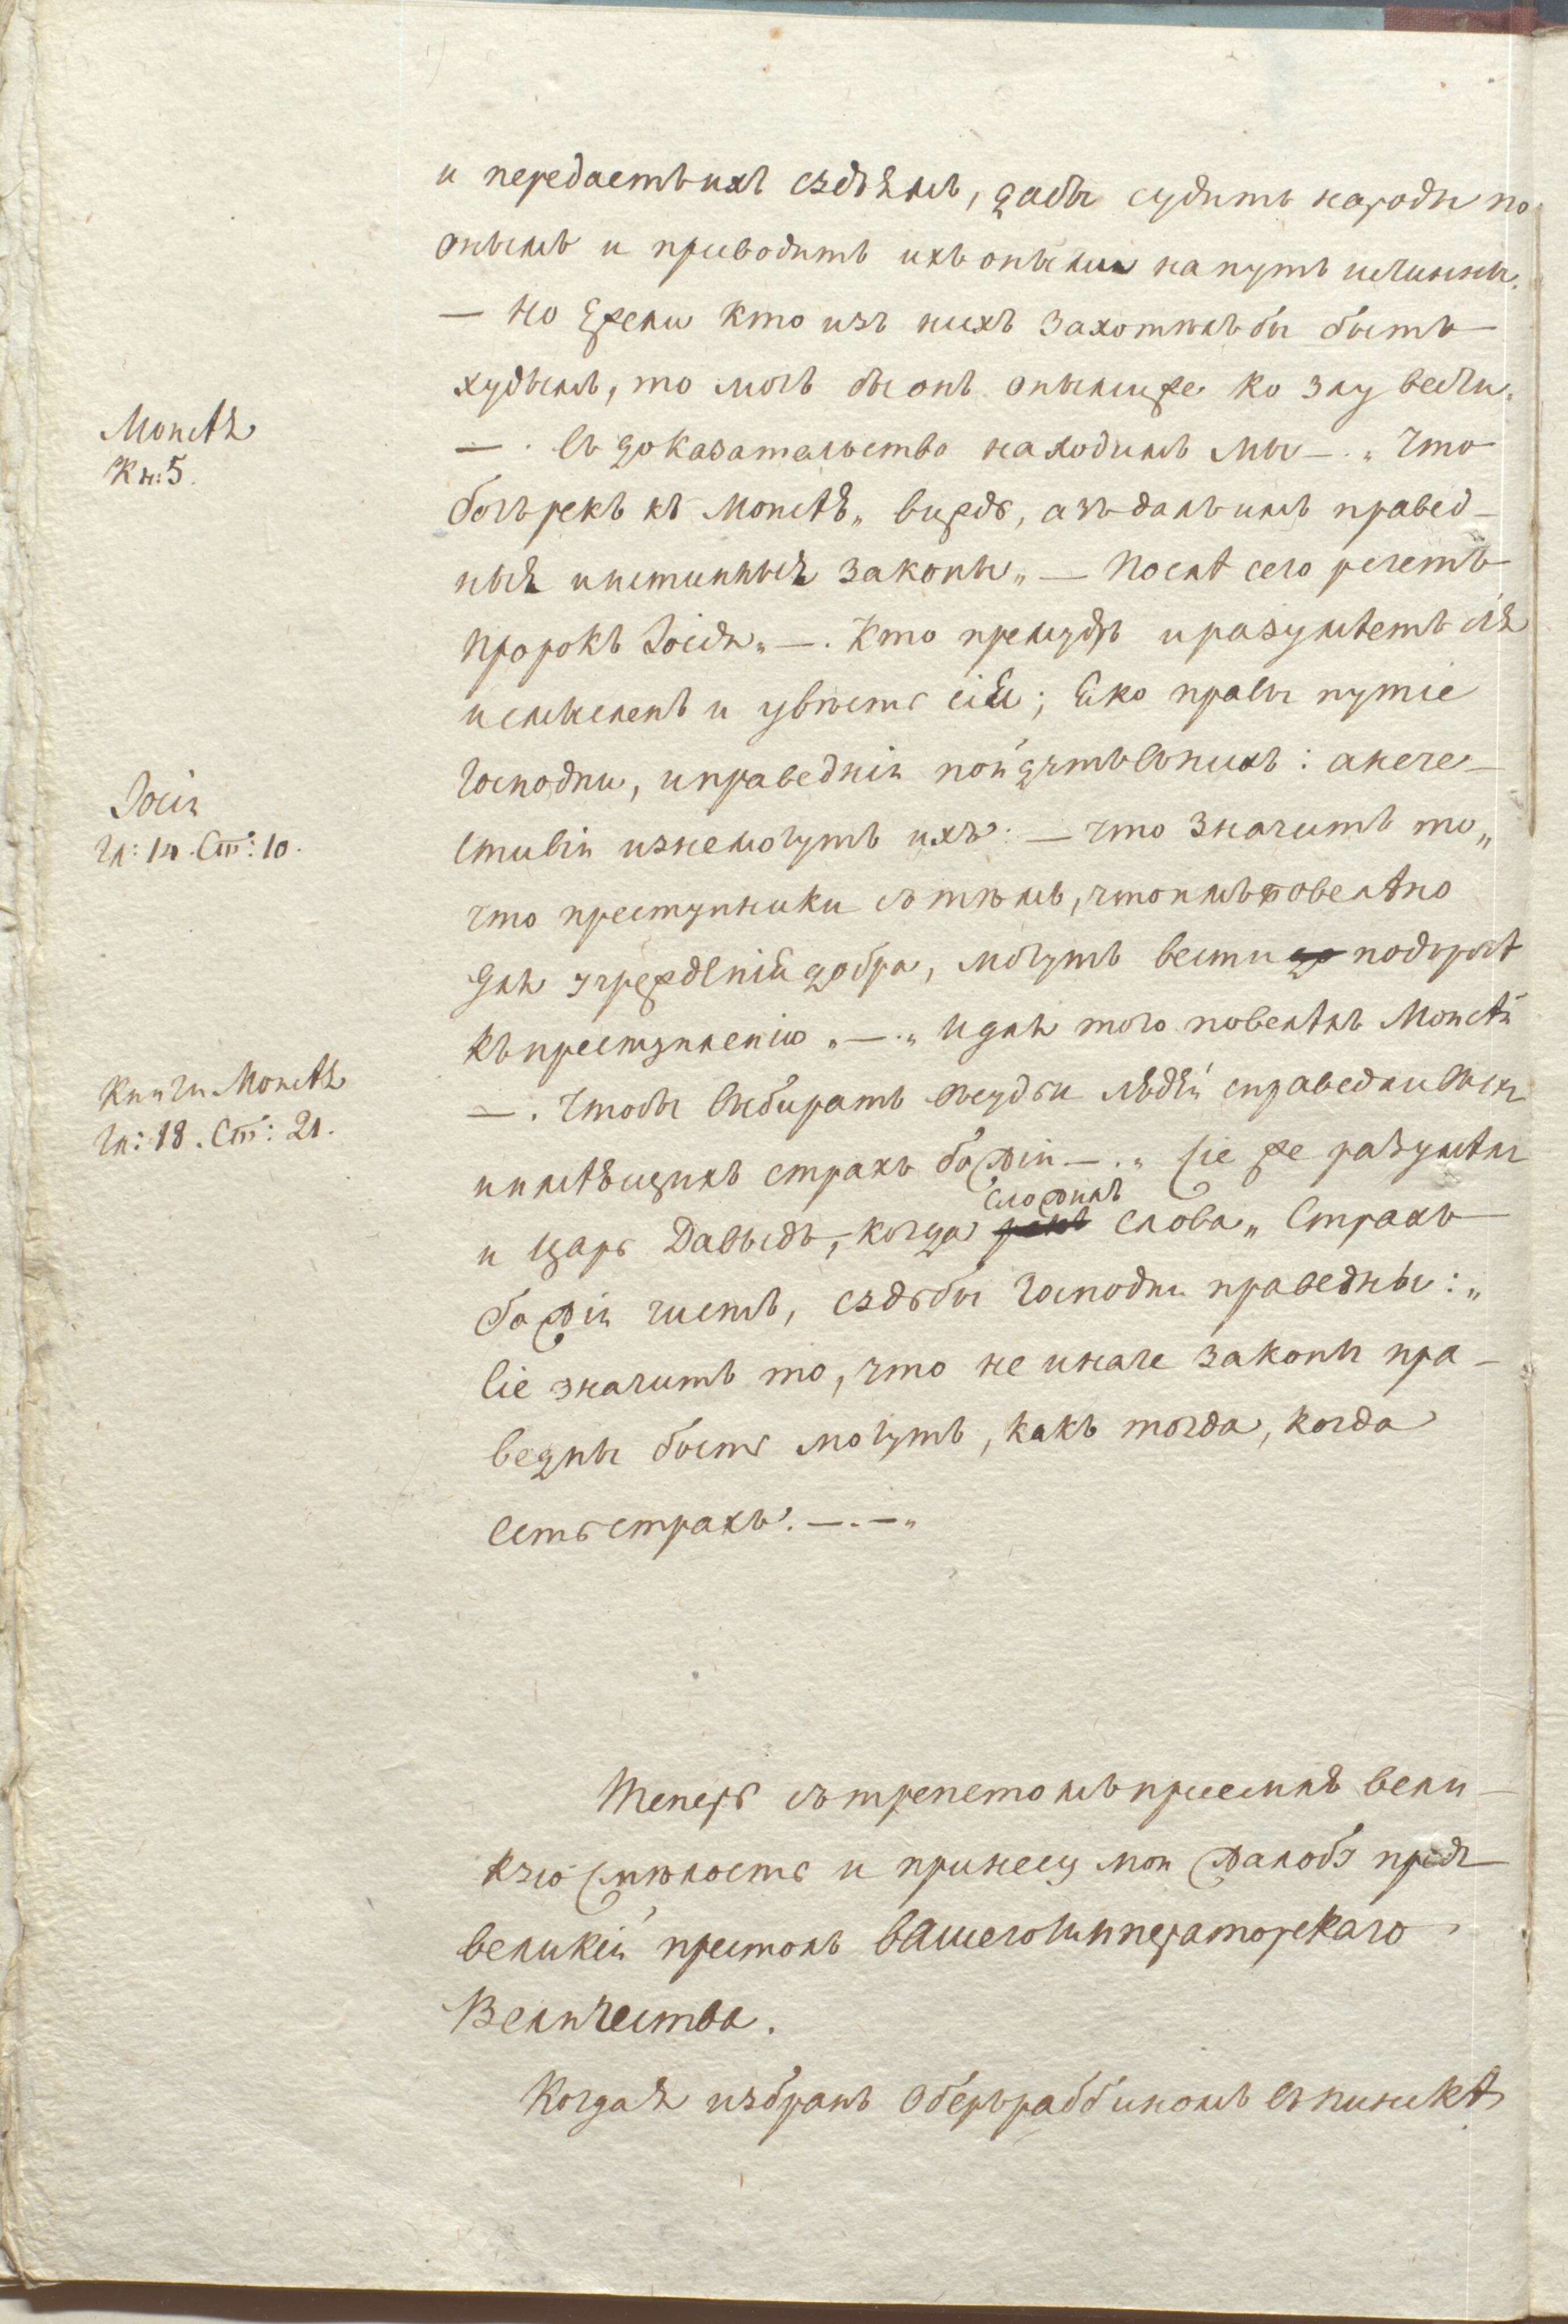 и передаетъ ихъ судѣямъ, дабы судить народы по
онымъ и приводить ихъ оными на путь истинны.
— но Ежели кто изъ нихъ захотѣлъ бы быть
худымъ, то могъ бы онъ онымиже ко злу вести.
Моисѣя
Кн: 5.
—. Въ доказательство находимъ мы —. „ что
богъ рекъ къ Моисѣю „ виждь, азъ далъ имъ правед-
ныя и истинныя законы „ — Послѣ сего речетъ
пророкъ Іосія „ —. Кто премудръ и разумѣетъ сія
и смысленъ и увѣсть сія; Яко правы путіе
Іосія
Гл: 14. Ст: 10.
Господни, и праведніи пойдутъ въ нихъ: а нече-
стивіи изнемогутъ ихъ. — что значитъ то „
что преступники съ тѣмъ, что имъ повелѣно
для учрежденій добра, могутъ вести до подпрост
къ преступленію „ —. „ И для того повелѣлъ Моисѣй
Книги Моисѣя
Гл: 18. Ст: 21.
—. чтобы выбирать въ судьи людѣй справедливыхъ
и имѣющихъ страхъ божіи —. „ Сіе же разумѣлъ
и Царь Давыдъ, когда рекъ сложилъ слова „ Страхъ
божіи чистъ, судьбы Господни праведны: „
Сіе значитъ то, что не иначе законы пра-
ведны быть могутъ, какъ тогда, когда
Есть страхъ. —. — „
Теперь съ трепетомъ приемлю вели-
кую смѣлость и принесу мои жалобы предъ
великій престолъ Вашего Императорскаго
Величества.
Когда я избранъ Оберъраббиномъ въ пинскѣ